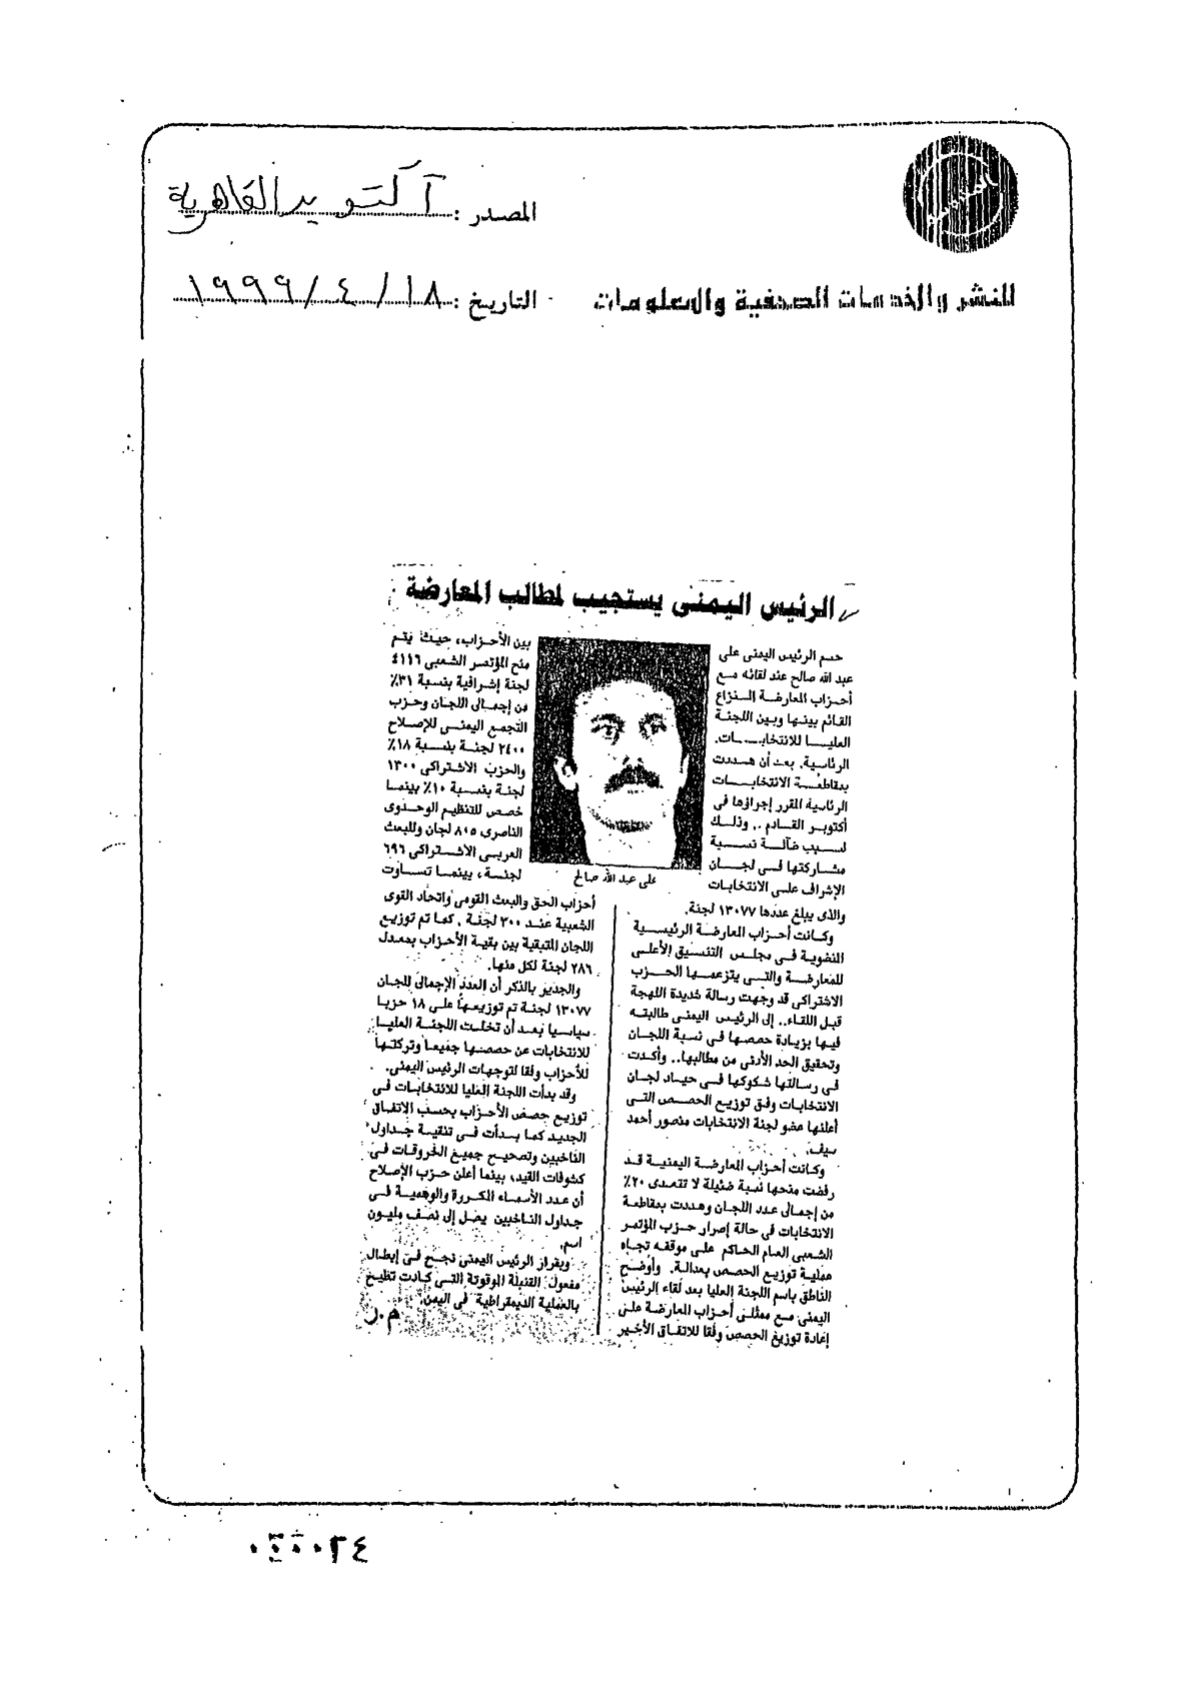 المصدر : أكتوبر القاهرية
للنشر والخدمات الصحفية والمعلومات
التاريخ : ١٨ / ٤ / ١٩٩٩
الرئيس اليمنى يستجيب لمطالب المعارضة
حسم الرئيس اليمنى على
عبد الله صالح عند لقائه مع
أحزاب المعارضة النزاع
القائم بينها وبين اللجنة
العليا للانتخابات
الرئاسية. بعد أن هددت
بمقاطعة الانتخابات
الرئاسية المقرر إجراؤها فى
أكتوبر القادم .. وذلك
بسبب ضآلة نسبة
مشاركتها فى لجان
الإشراف على الانتخابات
والذى يبلغ عددها ١٣٠٧٧ لجنة.
وكانت أحزاب المعارضة الرئيسية
المنضوية فى مجلس التنسيق الأعلى
للمعارضة والتى يتزعمها الحزب
الاشتراكى قد وجهت رسالة شديدة اللهجة
قبل اللقاء.. إلى الرئيس اليمنى طالبته
فيها بزيادة حصصها فى نسبة اللجان
وتحقيق الحد الأدنى من مطالبها.. وأكدت
فى رسالتها شكوكها فى حياد لجان
الانتخابات وفق توزيع الحصص التى
أعلنها عضو لجنة الانتخابات منصور أحمد
سيف.
وكانت أحزاب المعارضة اليمنية قد
رفضت منحها نسبة ضئيلة لا تتعدى ٢٠٪
من إجمالى عدد اللجان وهددت بمقاطعة
الانتخابات فى حالة إصرار حزب المؤتمر
الشعبى العام الحاكم على موقفه تجاه
عملية توزيع الحصص بعدالة. وأوضح
الناطق باسم اللجنة العليا بعد لقاء الرئيس
اليمنى مع ممثلى أحزاب المعارضة على
إعادة توزيع الحصص وفقا للاتفاق الأخير
على عبد الله صالح
بين الأحزاب، حيث يتم
منح المؤتمر الشعبى ٤١١٦
لجنة إشرافية بنسبة ٣١٪
من إجمالى اللجان وحزب
التجمع اليمنى للإصلاح
٢٤٠٠ لجنة بنسبة ١٨٪
والحزب الاشتراكى ١٣٠٠
لجنة بنسبة ١٠٪ بينما
خصص للتنظيم الوحدوى
الناصرى ٨٠٥ لجان وللبعث
العربى الاشتراكى ٦٩٦
لجنة، بينما تساوت
أحزاب الحق والبعث القومى واتحاد القوى
الشعبية عند ٣٠٠ لجنة . كما تم توزيع
اللجان المتبقية بين بقية الأحزاب بمعدل
٢٨٦ لجنة لكل منها.
والجدير بالذكر أن العدد الإجمالى للجان
١٣٠٧٧ لجنة تم توزيعها على ١٨ حزبا
سياسيا بعد أن تخلت اللجنة العليا
للانتخابات عن حصصها جميعا وتركتها
للأحزاب وفقا لتوجهات الرئيس اليمنى.
وقد بدأت اللجنة العليا للانتخابات فى
توزيع حصص الأحزاب بحسب الاتفاق
الجديد كما بدأت فى تنقية جداول
الناخبين وتصحيح جميع الخروقات فى
كشوفات القيد، بينما أعلن حزب الإصلاح
أن عدد الأسماء المكررة والوهمية فى
جداول الناخبين يصل إلى نصف مليون
اسم.
وبقرار الرئيس اليمنى نجح فى إبطال
مفعول القنبلة الموقوتة التى كادت تطيح
بالعملية الديمقراطية فى اليمن.
م.ر